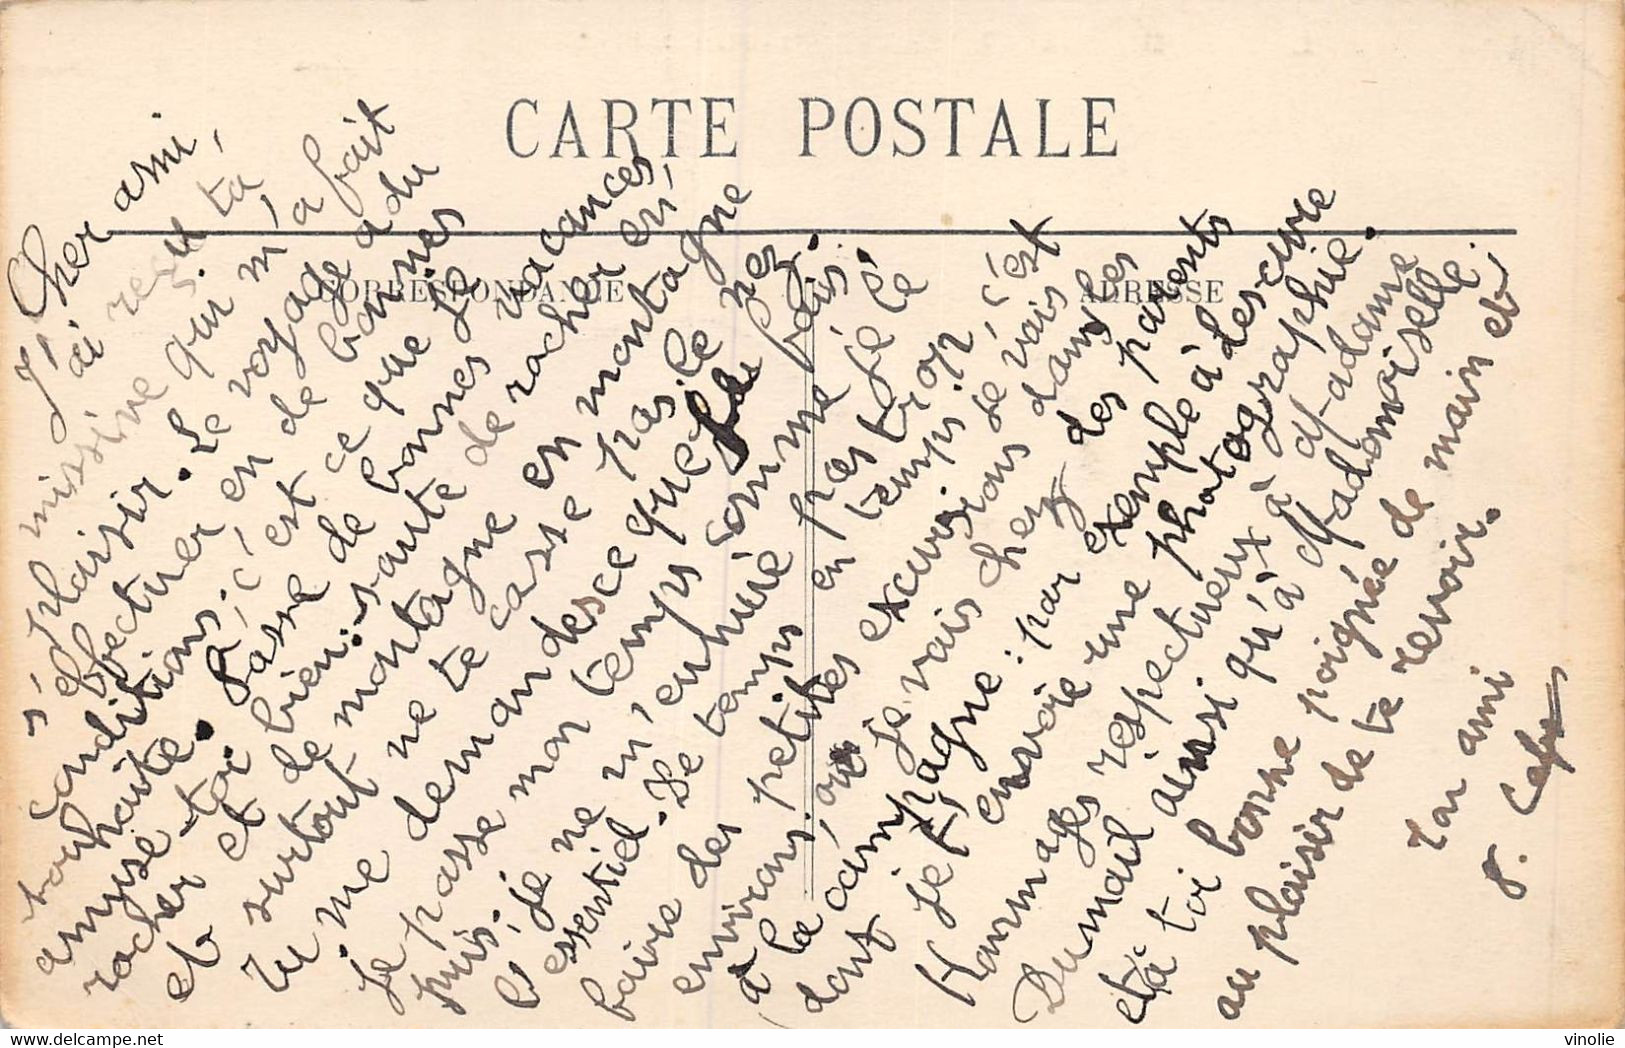 CARTE POSTALE
CORRESPONDANCE
ADRESSE
Cher ami,
J'ai reçu ta
missive qui m'a fait
plaisir. Le voyage a du
s'effectuer en de bonnes
conditions. C'est ce que je
souhaite. Passe de bonnes vacances
amuse toi bien: saute de rocher en
rocher et de montagne en montagne
et surtout ne te casse pas le nez.
Tu me demandes ce que je fais.
Je passe mon temps comme je
puis. Je ne m'ennuie pas trop c'est
l'essentiel. Le temps en temps je vais
faire des petites excursions dans les
environs. ou je vais chez des parents
à la campagne: par exemple à Lescure
dont je t'envoie une photographie.
Hommages respectueux à Madame
Dumail ainsi qu'à Mademoiselle.
et à toi bonne poignée de main et
au plaisir de te revoir.
Ton ami